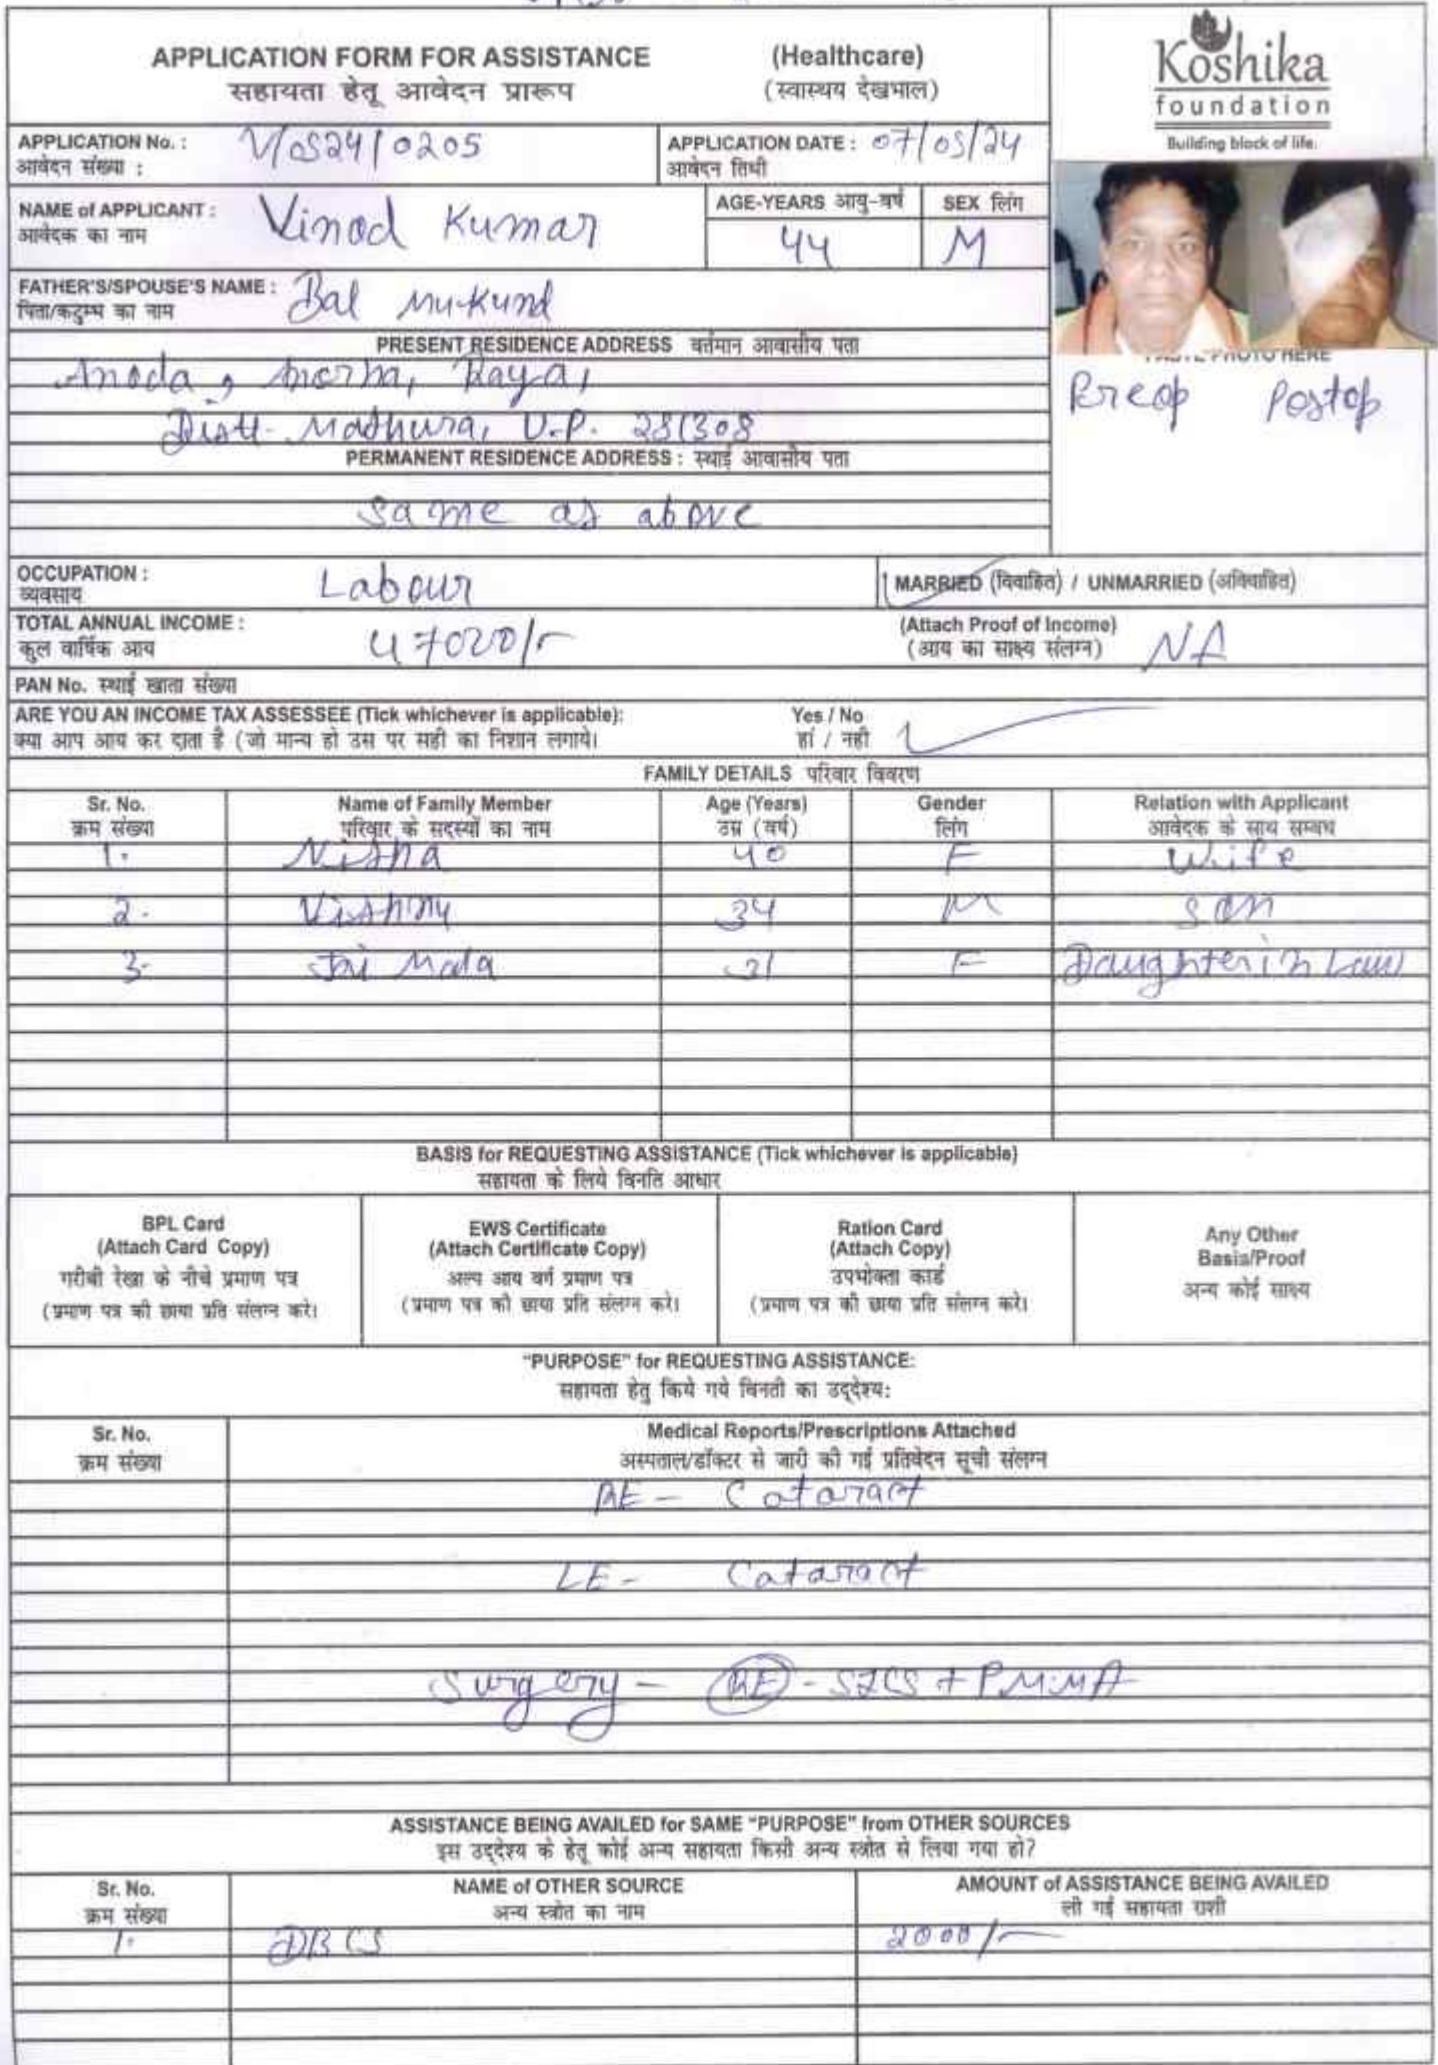 APPLICATION FORM FOR ASSISTANCE (Healthcare)
सहायता हेतू आवेदन प्रारूप (स्वास्थय देखभाल)
Koshika
foundation
Building block of life.
APPLICATION No. : V/0524/0205 APPLICATION DATE : 07/05/24
आवेदन संख्या : आवेदन तिथी
NAME of APPLICANT : Vinod Kumar AGE-YEARS आयु-वर्ष 44 SEX लिंग M
आवेदक का नाम
FATHER'S/SPOUSE'S NAME : Bal Mukund
पिता/कटुम्भ का नाम
PHOTO HERE
Preop Postop
PRESENT RESIDENCE ADDRESS वर्तमान आवासीय पता
Anoda, Raya,
Distt- Mathura, U.P. 281308
PERMANENT RESIDENCE ADDRESS : स्थाई आवासीय पता
Same as above
OCCUPATION : Labour MARRIED (विवाहित) / UNMARRIED (अविवाहित)
व्यवसाय
TOTAL ANNUAL INCOME : 47020/- (Attach Proof of Income) NA
कुल वार्षिक आय (आय का साक्ष्य संलग्न)
PAN No. स्थाई खाता संख्या
ARE YOU AN INCOME TAX ASSESSEE (Tick whichever is applicable): Yes / No
क्या आप आय कर दाता है (जो मान्य हो उस पर सही का निशान लगाये। हां / नही
FAMILY DETAILS परिवार विवरण
Sr. No. Name of Family Member Age (Years) Gender Relation with Applicant
क्रम संख्या परिवार के सदस्यों का नाम उम्र (वर्ष) लिंग आवेदक के साथ सम्बध
1. Nisha 40 F Wife
2. Vishnu 34 M Son
3. Jai Mala 31 F Daughter in Law
BASIS for REQUESTING ASSISTANCE (Tick whichever is applicable)
सहायता के लिये विनति आधार
BPL Card
(Attach Card Copy)
गरीबी रेखा के नीचे प्रमाण पत्र
(प्रमाण पत्र की छाया प्रति संलग्न करे।
EWS Certificate
(Attach Certificate Copy)
अल्प आय वर्ग प्रमाण पत्र
(प्रमाण पत्र की छाया प्रति संलग्न करे।
Ration Card
(Attach Copy)
उपभोक्ता कार्ड
(प्रमाण पत्र की छाया प्रति संलग्न करे।
Any Other
Basis/Proof
अन्य कोई साक्ष्य
"PURPOSE" for REQUESTING ASSISTANCE:
सहायता हेतु किये गये विनती का उद्देश्य:
Sr. No. Medical Reports/Prescriptions Attached
क्रम संख्या अस्पताल/डॉक्टर से जारी की गई प्रतिवेदन सूची संलग्न
RE - Cataract
LE - Cataract
Surgery - RE - SICS + PMMA
ASSISTANCE BEING AVAILED for SAME "PURPOSE" from OTHER SOURCES
इस उद्देश्य के हेतू कोई अन्य सहायता किसी अन्य स्त्रोत से लिया गया हो?
Sr. No. NAME of OTHER SOURCE AMOUNT of ASSISTANCE BEING AVAILED
क्रम संख्या अन्य स्त्रोत का नाम ली गई सहायता राशी
1. DBCS 2000/-